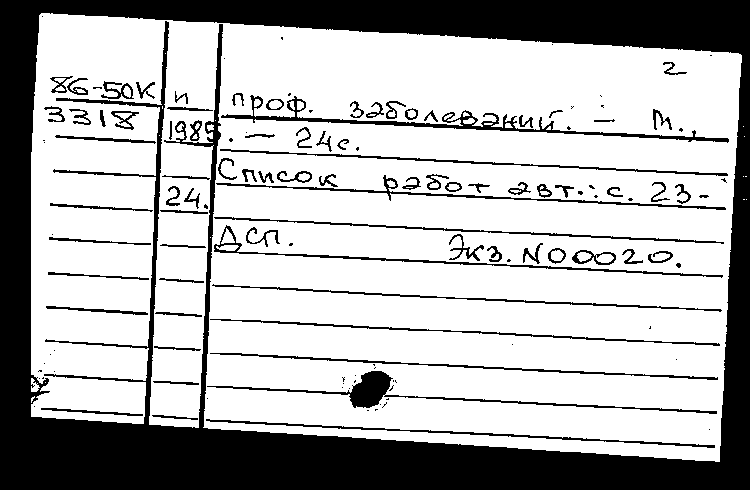 2
86-50К и проф. заболеваний. — М.,
3318 1985. — 24с.
Список работ авт.: с. 23-
24.
ДСП. Экз. N00020.